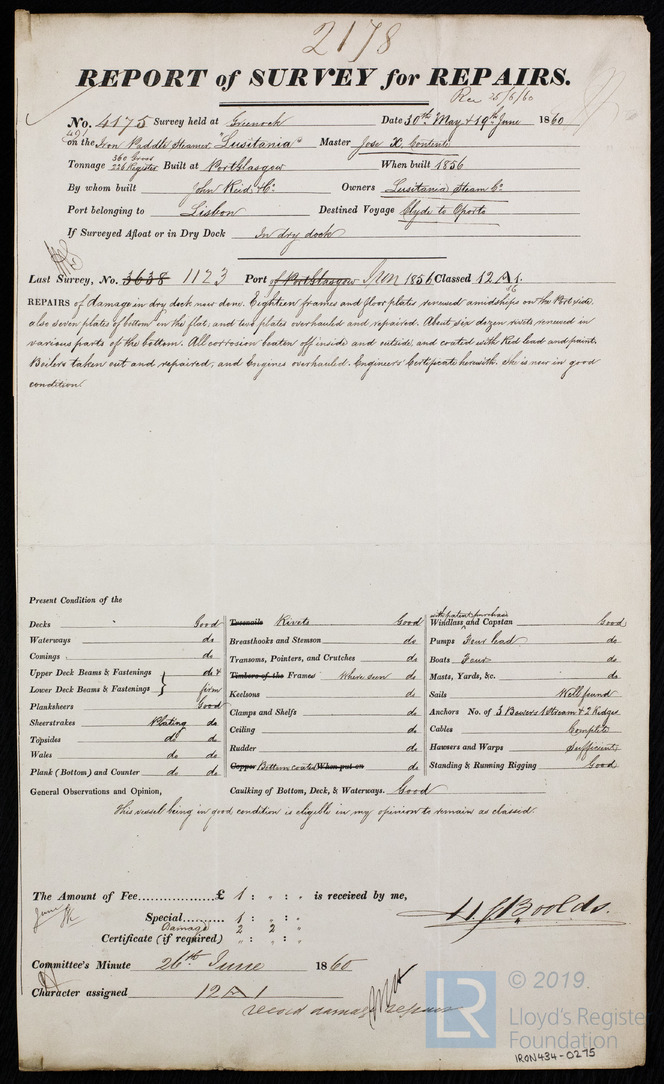 2178
REPORT of SURVEY for REPAIRS.
Rec 25/6/60
No. 4175 Survey held at Greenock Date 30th May & 19th June 1860
491
on the Iron Paddle Steamer "Lusitania" Master Jose K. Contente
Tonnage 360 Gross 226 Register Built at Port Glasgow When built 1856
By whom built John Reid & Co. Owners Lusitania Steam Co.
Port belonging to Lisbon Destined Voyage Clyde to Oporto
If Surveyed Afloat or in Dry Dock In dry dock
Last Survey, No. 3638 1123 Port of Port Glasgow Iron 1856 Classed 12 A 1.
56
REPAIRS of damage in dry dock now done. Eighteen frames and floor plates, renewed amidships on the Port side,
also seven plates of bottom in the flat, and two plates overhauled and repaired. About six dozen rivets renewed in
various parts of the bottom. All corrosion beaten off inside and outside and coated with Red lead and paint.
Boilers taken out and repaired, and Engines overhauled. Engineers Certificate herewith. She is now in good
condition.
Present Condition of the
Decks Good
Waterways do
Comings do
Upper Deck Beams & Fastenings do &
Lower Deck Beams & Fastenings firm
Planksheers Good
Sheerstrakes Plating do
Topsides do do
Wales do do
Plank (Bottom) and Counter do do
Treenails Rivets Good
Breasthooks and Stemson do
Transoms, Pointers, and Crutches do
Timbers of the Frames where seen do
Keelsons do
Clamps and Shelfs do
Ceiling do
Rudder do
Copper Bottom coated When put on do
Caulking of Bottom, Deck, & Waterways. Good
with patent purchase
Windlass and Capstan Good
Pumps Four lead do
Boats Four do
Masts, Yards, &c. do
Sails Well found
Anchors No. of 3 Bowers 1 Stream & 2 Kedges
Cables Complete
Hawsers and Warps Sufficient
Standing & Running Rigging Good
General Observations and Opinion,
This vessel being in good condition is eligible in my opinion to remain as classed.
The Amount of Fee £ 1 : " : " is received by me,
Special 1 : " : "
Damage 2 2 "
Certificate (if required) " : " : "
H. J. Boolds.
Committee's Minute 26th June 1860
Character assigned 12 A 1
record damage repairs
LR
© 2019.
Lloyd's Register
Foundation
IRON434-0275